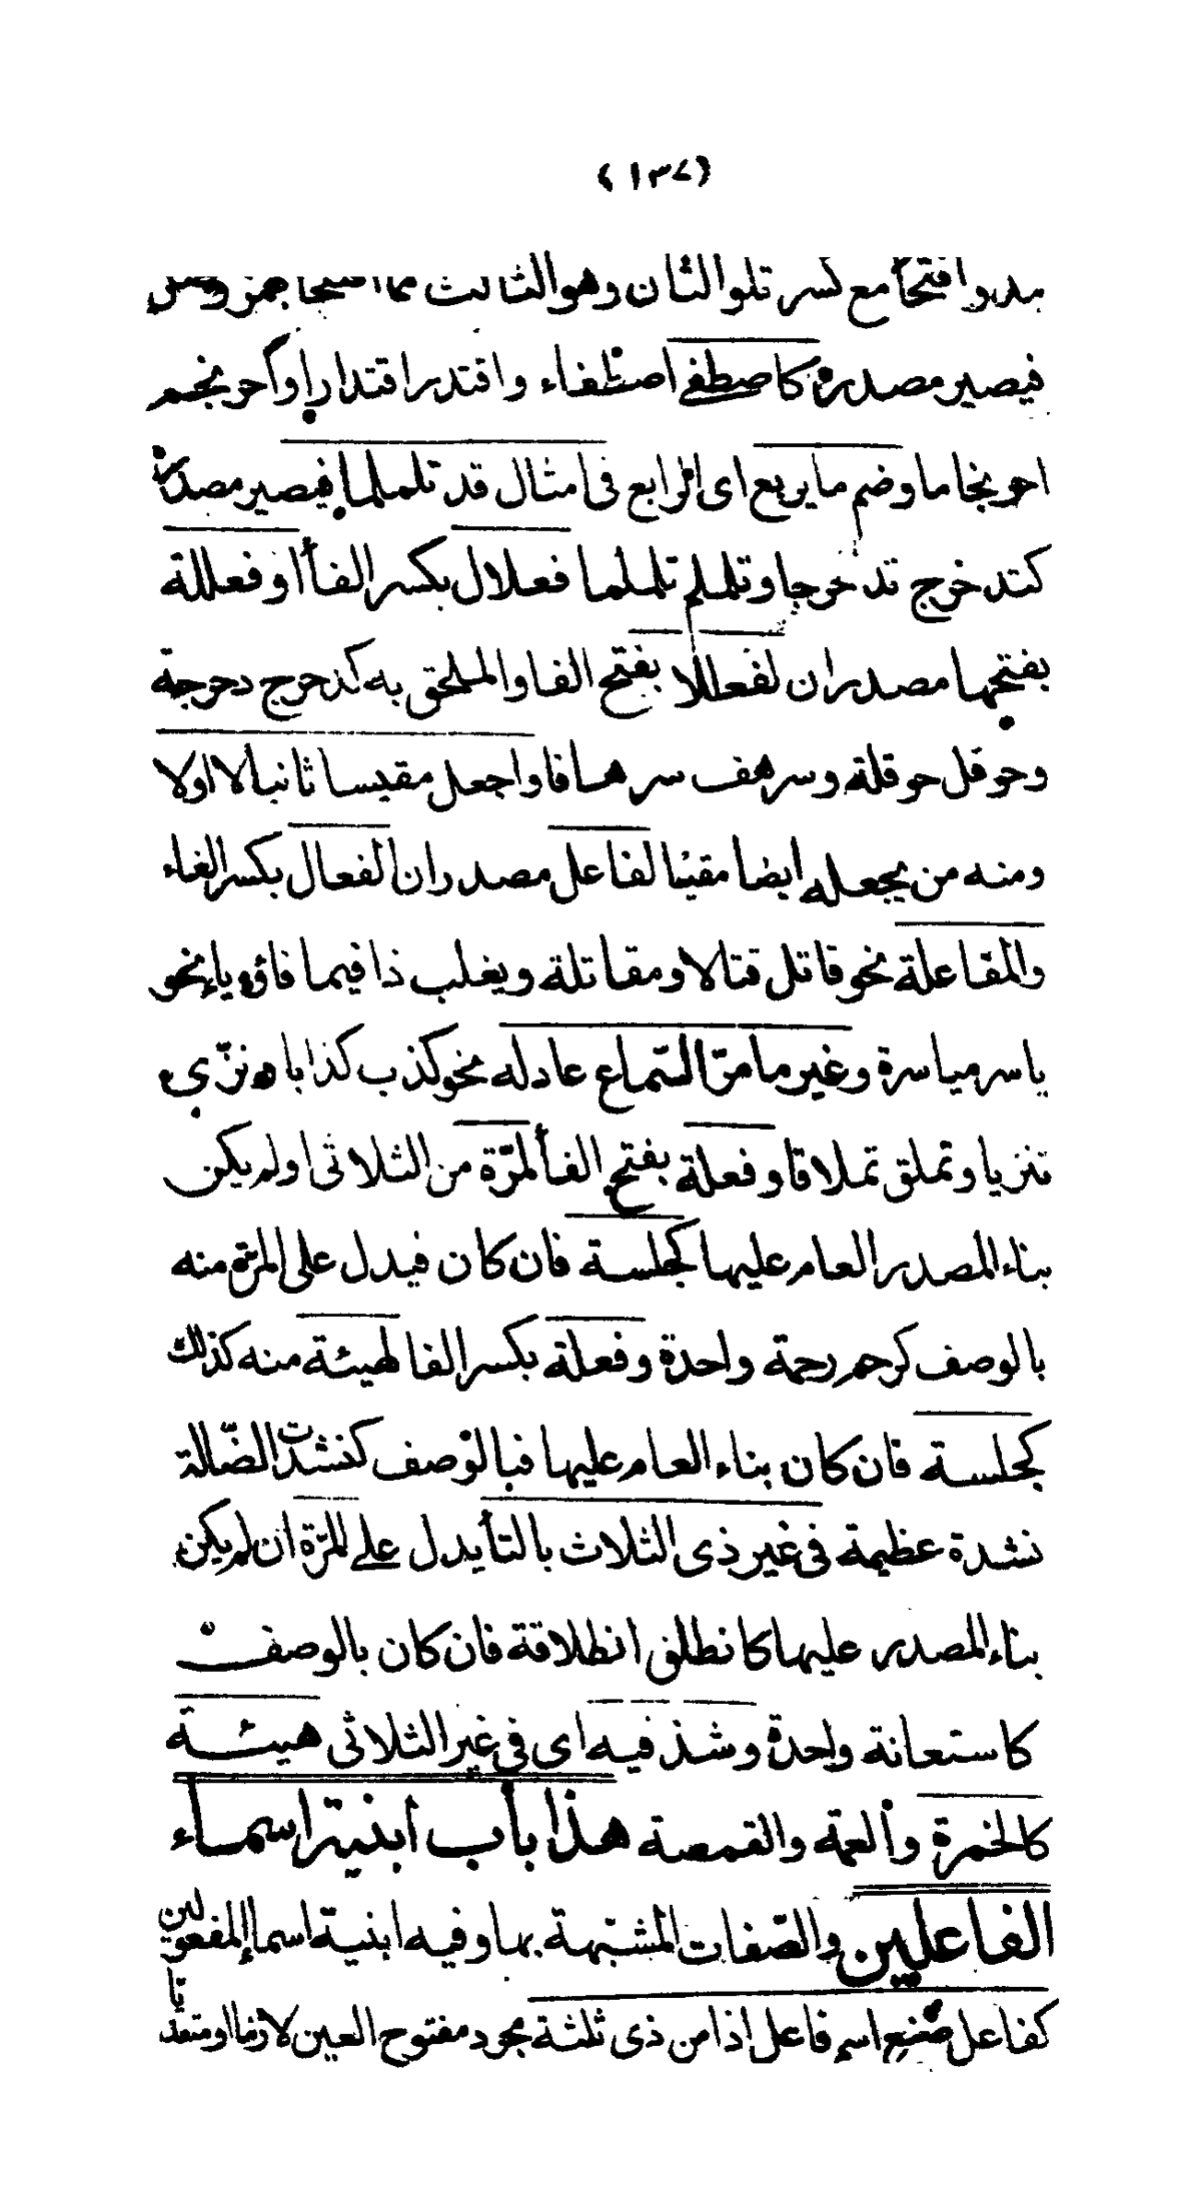 (١٣٧)
مدوا فتحا مع كسر تلو الثان وهو الثالث مما افتتحا بهمز وصل
فيصير مصدره كاصطفى اصطفاء واقتدر اقتدارا واحرنجم
احرنجاما وضم ما يربع اى الرابع فى امثال قد تلملما فيصير مصدره
كتدحرج تدحرجا وتلملم تلملما فعلال بكسر الفاأ او فعللة
بفتحها مصدران لفعللا بفتح الفا والملحق به كدحرج دحرجة
وحوقل حوقلة وسرهف سرهافا واجعل مقيسا ثانيا لا اولا
ومنه من يجعله ايضا مقيسا لفاعل مصدران الفعال بكسر الفاء
والمفاعلة نحو قاتل قتالا ومقاتلة ويغلب ذا فيما فاؤه ياء نحو
ياسر مياسرة وغير ما مرّ السّماع عادله نحو كذب كذابا ه نزّى
تنزيا وتملق تملاقا وفعلة بفتح الفأ لمرّة من الثلاثى او لم يكن
بناء المصدر العام عليها كجلسة فان كان فيدل على المرّة منه
بالوصف كرحم رحمة واحدة وفعلة بكسر الفا لهيئة منه كذلك
كجلسة فان كان بناء العام عليها فبالوصف كنشدت الضّالة
نشدة عظيمة فى غير ذى الثلاث بالتأ يدل على المرّة ان لم يكن
بناء المصدر عليها كانطلق انطلاقة فان كان بالوصف
كاستعانة واحدة وشذ فيه اى فى غير الثلاثى هيئة
كالخمرة والعمة والقمصة هذا باب أبنية اسماء
الفاعلين والصّفات المشبّهة بها وفيه ابنية اسما المفعولين
كفاعل صغ اسم فاعل اذا من ذى ثلثة مجرد مفتوح العين لازما او متعديا